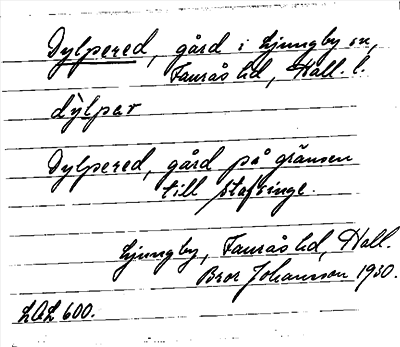 Dylpered, gård i Ljungby sn,
Faurås hd, Hall. l.
dy̆lpər
Dylpered, gård på gränsen
till Stafsinge.
Ljungby, Faurås hd, Hall.
Bror Johansson 1930.
LAL 600.